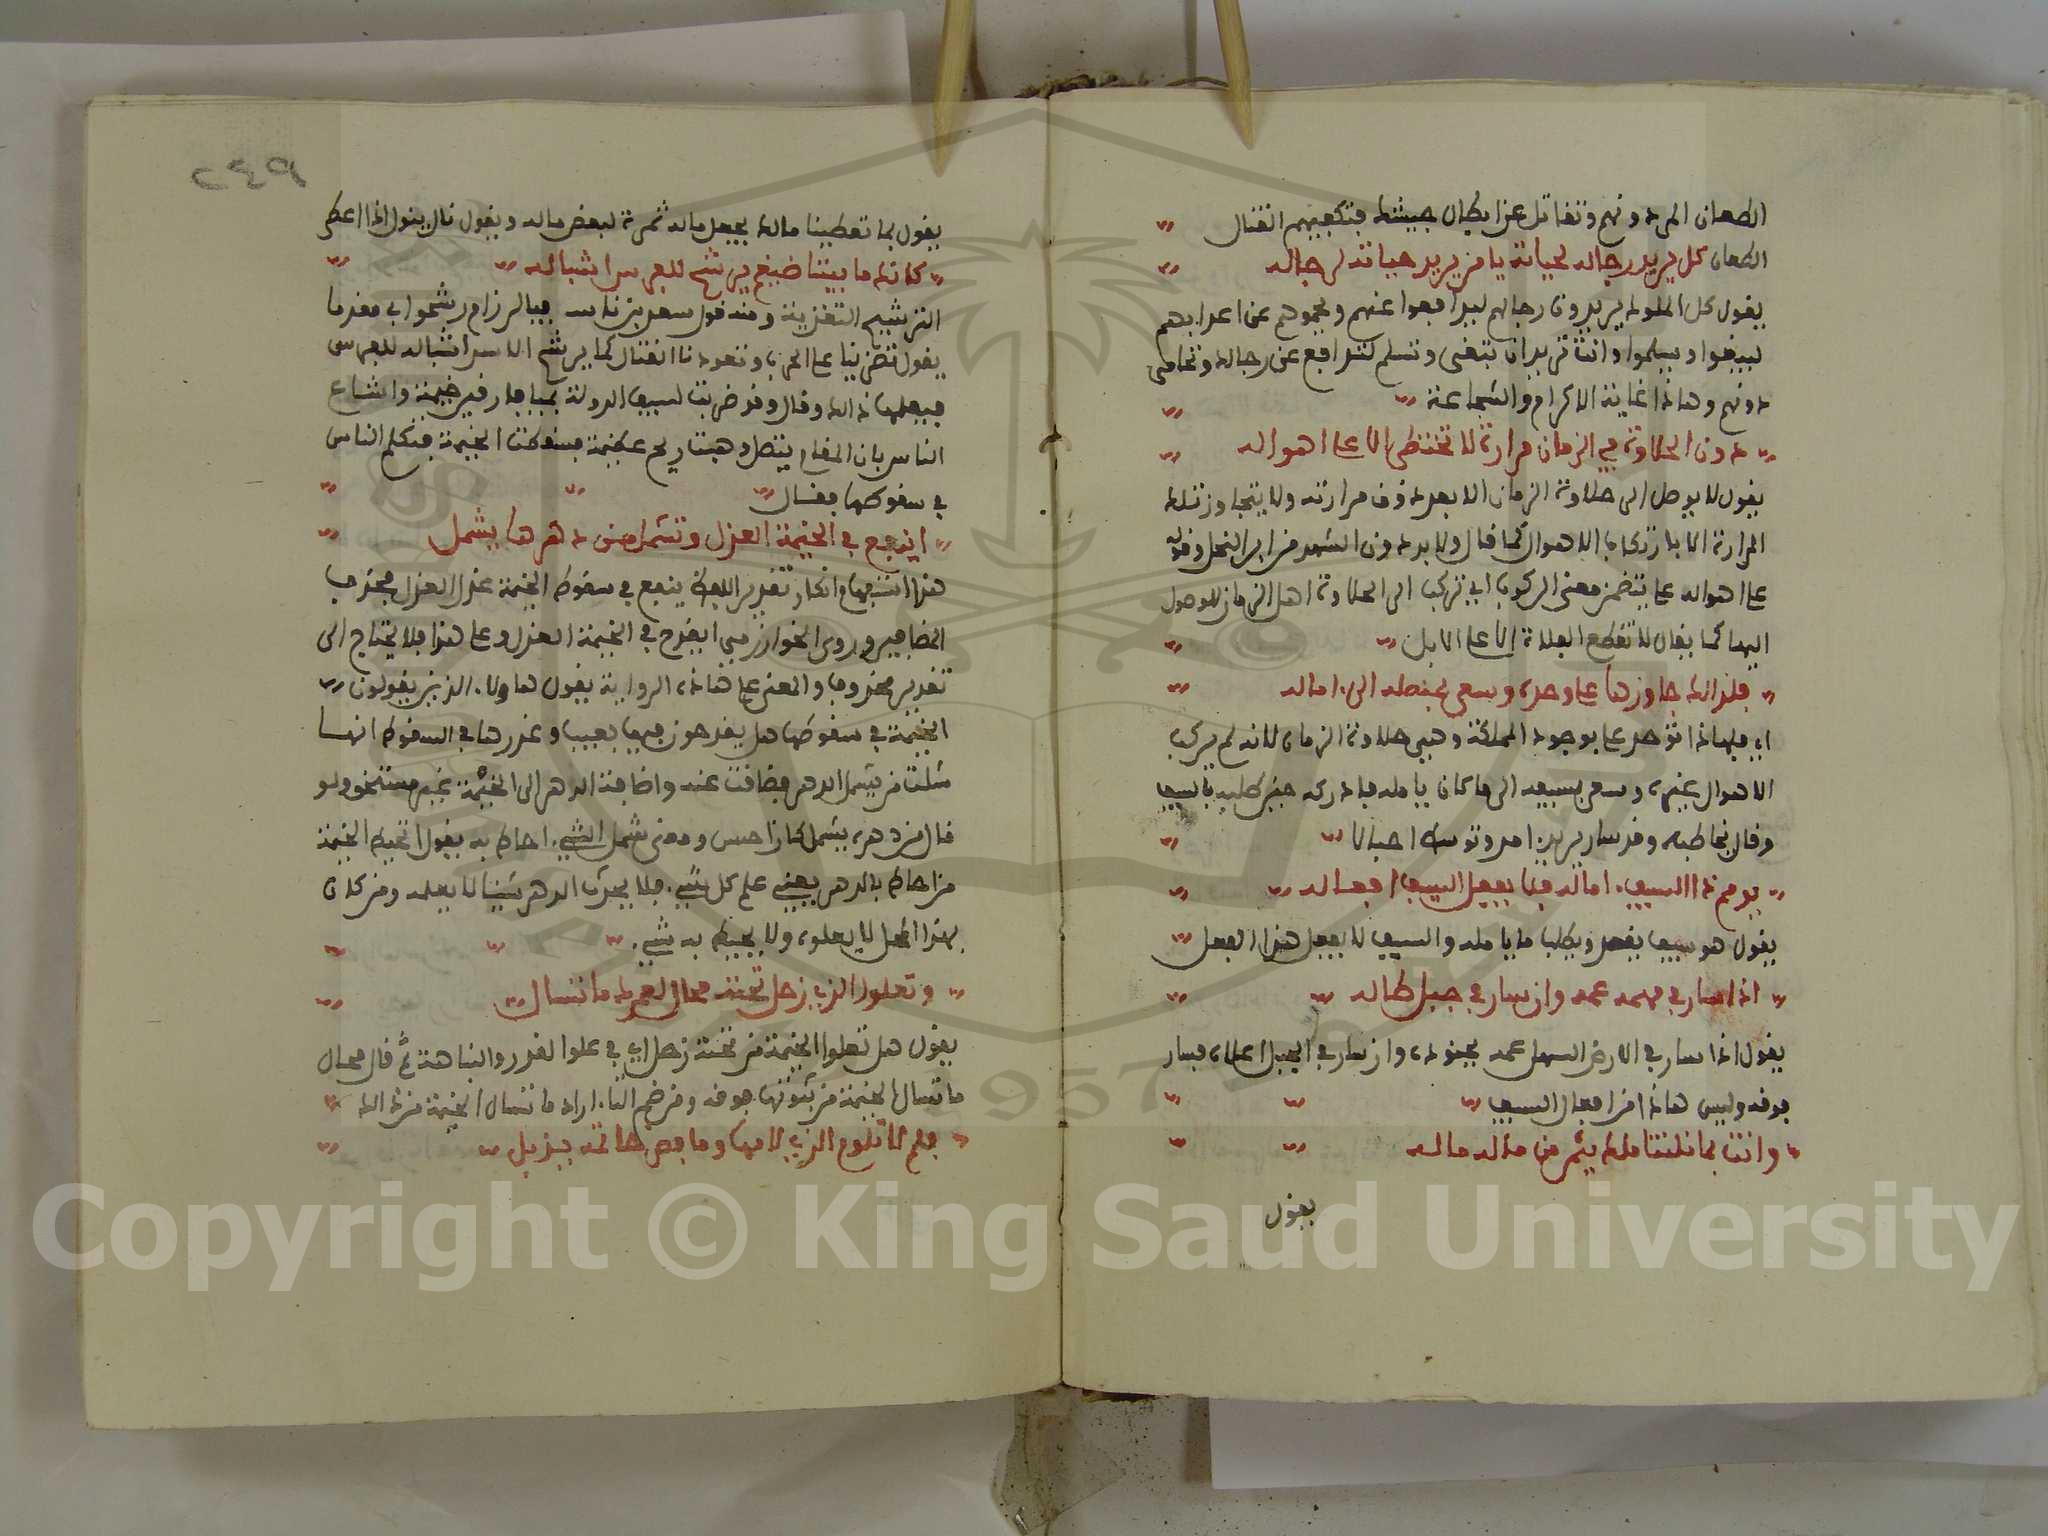 الطعان المردونهم وتقاتل عن ابطال جيشك فتكفيهم القتال
الطعان كل يريد رجاله لحياته يا من يريد حياته لرجاله
يقول كل الملوك يريدون رجالهم ليدافعوا عنهم ويحموهم عن اعدايهم
ليبقوا ويسلموا وانت تريد ان تبقى وتسلم لتدافع عن رجالك وتحامي
دونهم وهاذا غاية الاكرام والشجاعة
دون الحلاوة في الزمان مرارة لا تختطى الا على اهواله
يقول لا يوصل الى حلاوة الزمان الا بعد ذوق مرارته ولا يتجاوز تلك
المرارة الا بارتكاب الاهوال كما قال ولا بد دون الشهد من ابر النحل وقوله
على اهواله على يتضمن معنى الركوب اي تركب الى الحلاوة اهل الزمان للوصول
اليها كما يقال لا تقطع الفلاة الا على الابل
فلذاك جاوزها علي وحده وسعى بمنصله الى اماله
اي فلهاذا توحد علي بوجود المملكة وهي حلاوة الزمان لانه لم يركب
الاهوال غيره وسعى بسيفه الى ما كان يامله فادركه حين طلبه بالسيف
وقال يخاطبه وقد سار يريد امد وتوسط اجبالا
يومم ذا السيف اماله فلا يفعل السيف افعاله
يقول هو سيف يقصد ويطلب ما يامله والسيف لا يفعل هذا الفعل
اذا سار في مهمه عمه وان سار في جبل طاله
يقول اذا سار في الارض السهل عمه بجنوده وان سار في الجبل اعلاه فسار
فوقه وليس هاذا من افعال السيف
وانت بما نلتنا مالك يثمر من ماله ماله
يقول
يقول بما تعطينا مالك يجعل ماله ثمرة لبعض ماله ويقول نال ينول اذا اعطى
كانك ما بيننا ضيغم يرشح للفرس اشباله
الترشيح التغذية ومنه قول سعد بن ناسب فيالرزام رشحوا بي مقدما
يقول تضرينا على الحرب وتعودنا القتال كما يرشح الاسد اشباله للفرس
فيعلمها ذالك وقال وقد ضربت لسيف الدولة بميافارقين خيمة واشاع
الناس بان المقام يتصل وهبت ريح عظيمة فسقطت الخيمة فتكلم الناس
في سقوطها فقال
اينفع في الخيمة العذل وتشمل من دهرها يشمل
هذا استفهام وانكار تقدير اللفظ ينفع في سقوط الخيمة عذل العذل فحذف
المضاف وروى الخوارزمي ايقدح في الخيمة العذل وعلى هذا فلا يحتاج الى
تقدير محذوف والمعنى على هاذه الرواية يقول هاولاء الذين يقولون
الخيمة في سقوطها هل يقدحون فيها بعيب وعذرها في السقوط انها
شملت من يشمل الدهر فضاقت عنه واضافة الدهر الى الخيمة غير مستحسن ولو
قال من دهره يشمل كان احسن ومعنى شمل الشيء احاط به يقول اتحيط الخيمة
من احاط بالدهر يعني علم كل شيء فلا يحدث الدهر شيئا لا يعلمه ومن كان
بهذا المحل لا يعلوه ولا يحيط به شيء
وتعلوا الذي زحل تحته محال لعمرك ما تسال
يقول هل تعلوا الخيمة من تحته زحل اي في علوا القدر والنباهة ثم قال محال
ما تسال الخيمة من ثبوتها فوقه ومن ضم التاء اراد ما تسال الخيمة من ذالك
فلم لا تلوم الذي لامها وما فص خاتمه يذبل